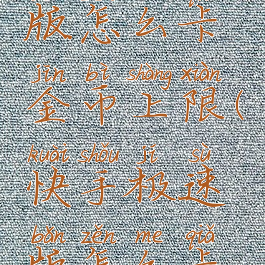 版怎么卡
jīn bì shàng xiàn
金币上限(
kuài shǒu jí sù
快手极速
bǎn zěn me qiǎ
版怎么卡